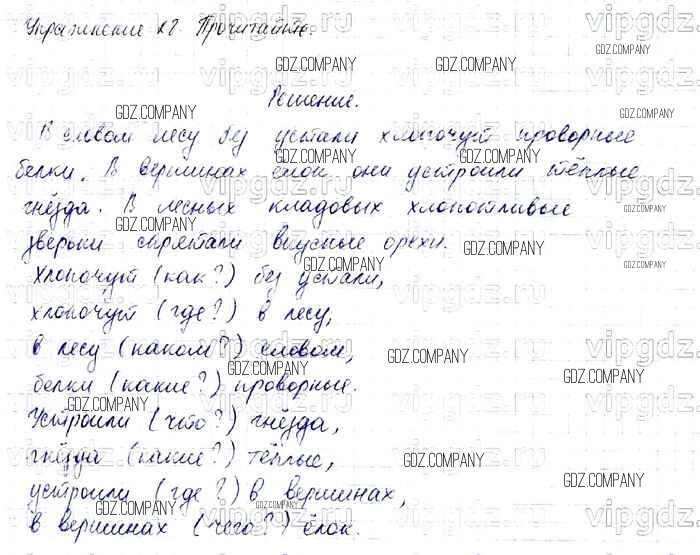 Упражнение 87. Прочитайте.
Решение.
В еловом лесу без устали хлопочут проворные
белки. В вершинах ёлок они устроили тёплые
гнёзда. В лесных кладовых хлопотливые
зверьки спрятали вкусные орехи.
Хлопочут (как?) без устали,
хлопочут (где?) в лесу,
в лесу (каком?) еловом,
белки (какие?) проворные.
Устроили (что?) гнёзда,
гнёзда (какие?) тёплые,
устроили (где?) в вершинах,
в вершинах (чего?) ёлок.